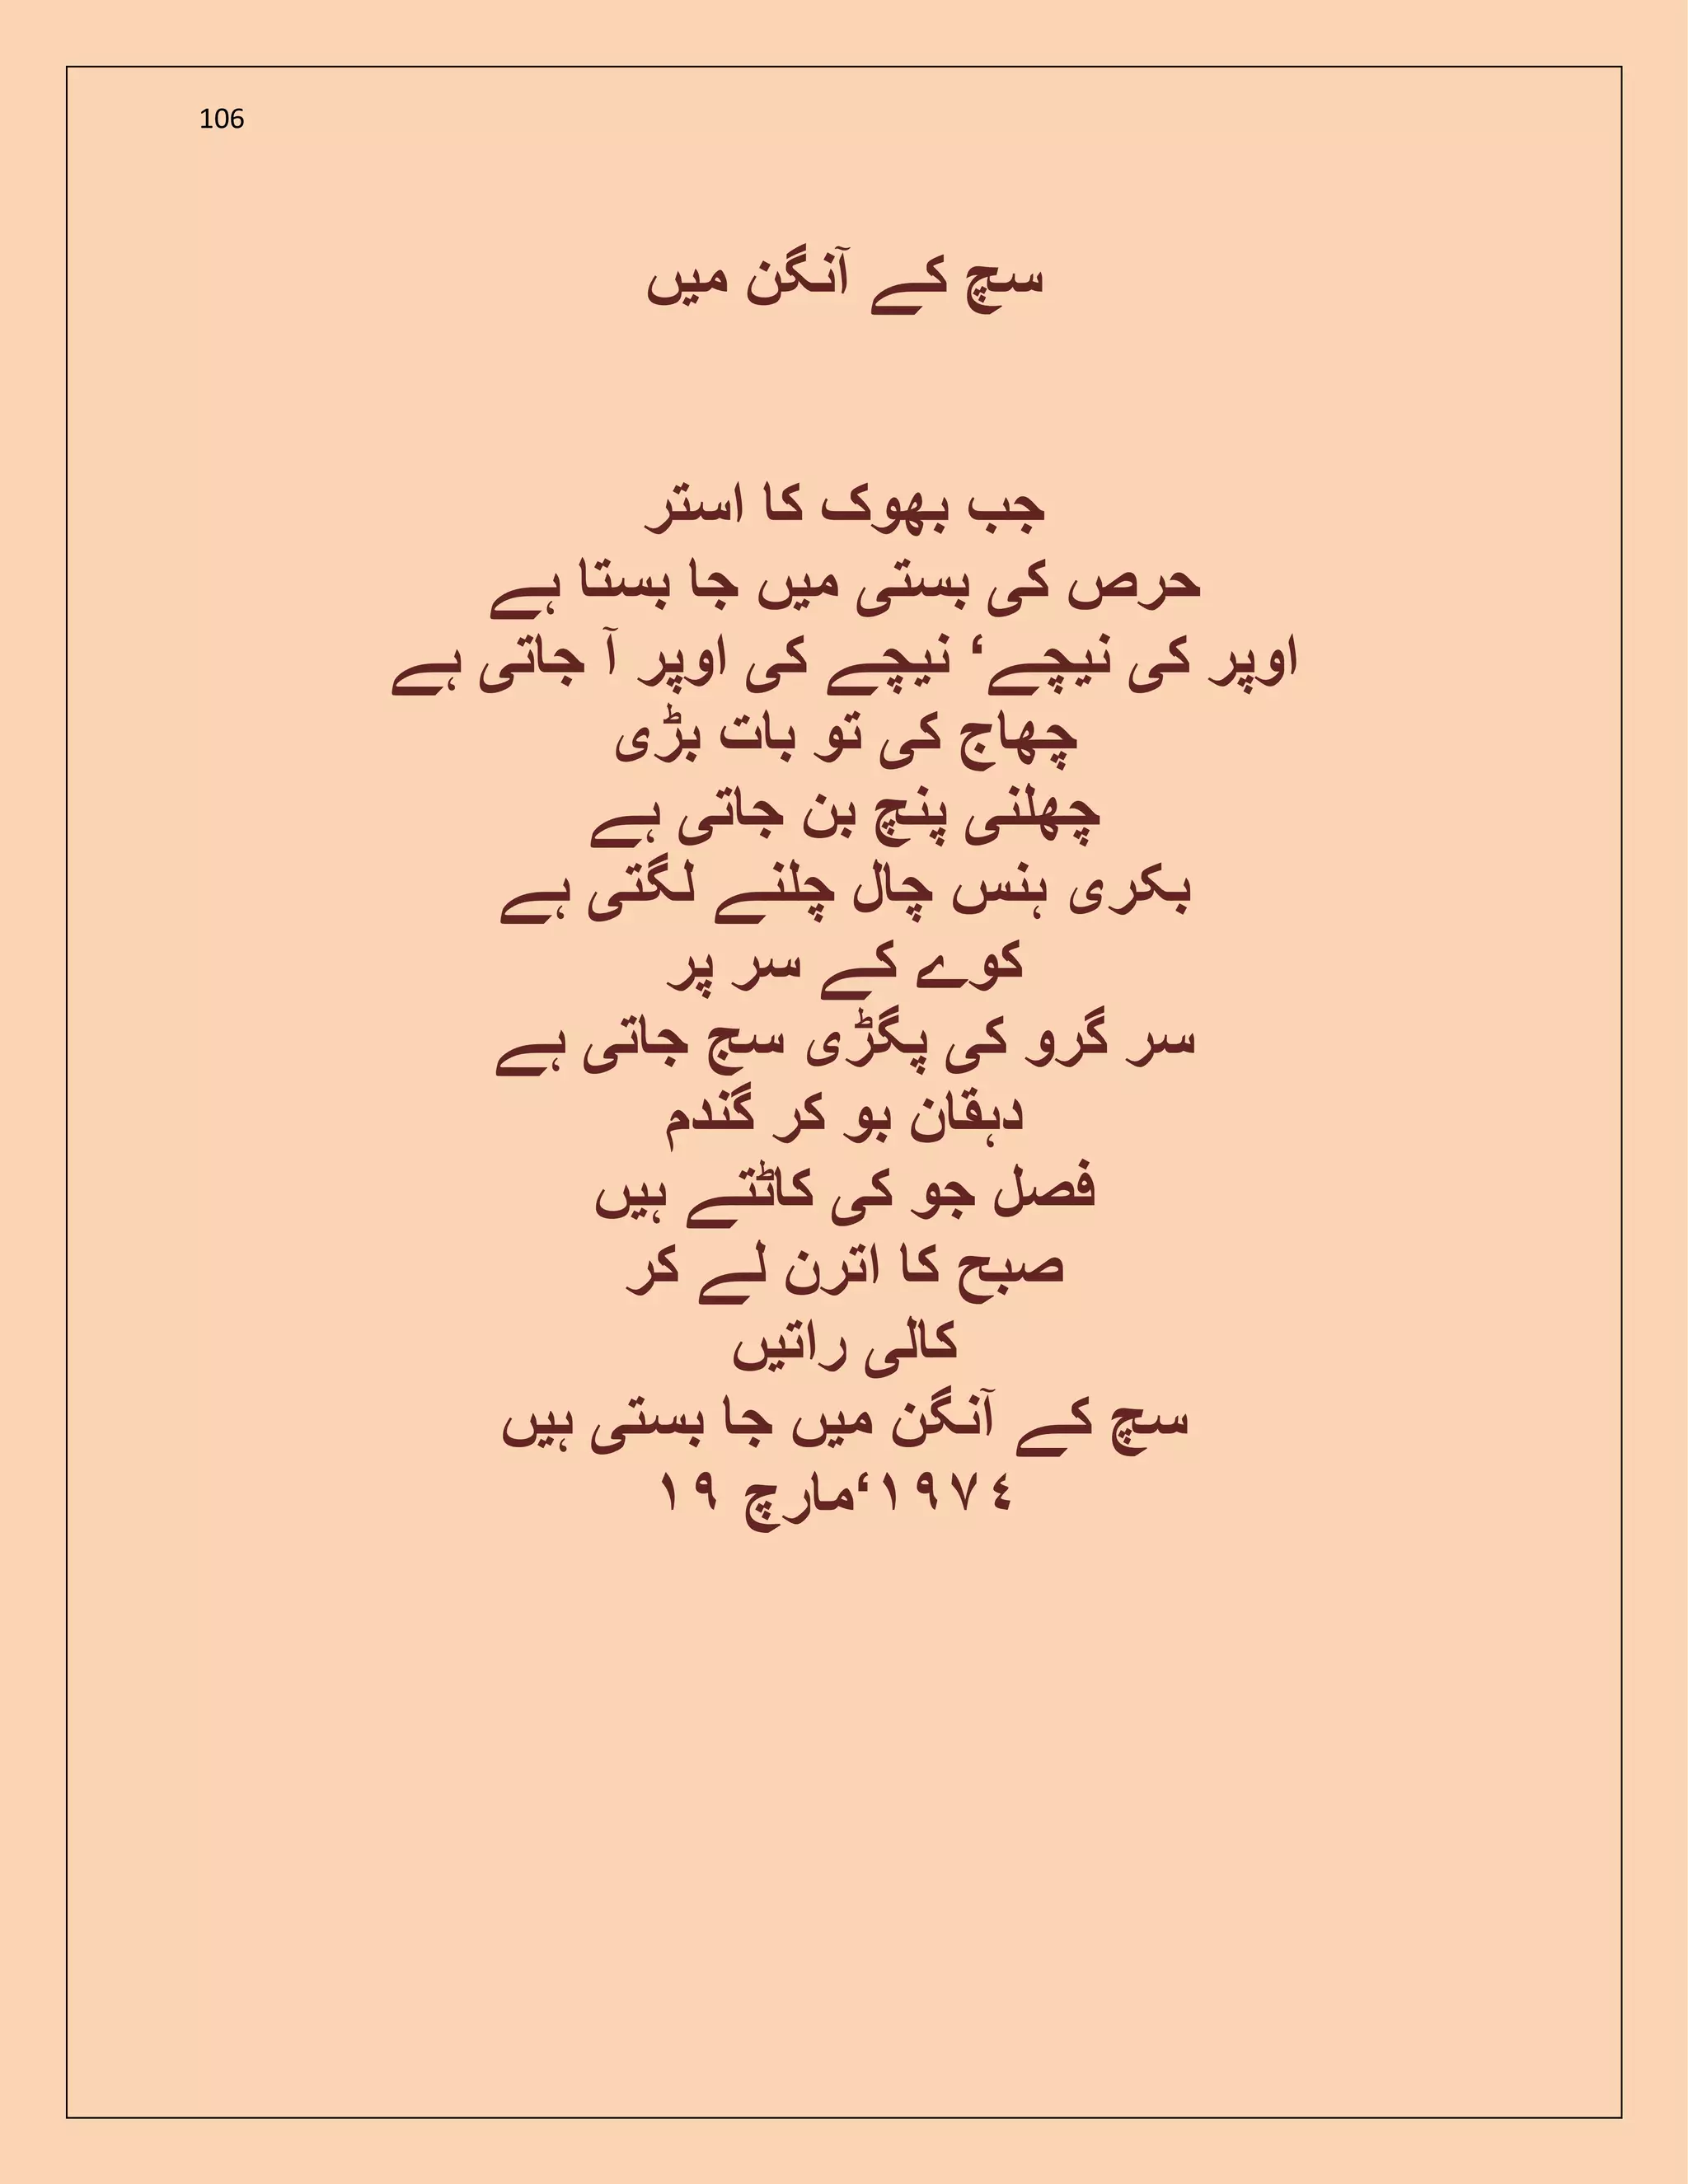 106
سچ کے آنگن میں
جب بھوک کا استر
حرص کی بستی میں جا بستا ہے
اوپر کی نیچے‘ نیچے کی اوپر آ جاتی ہے
چھاج کی تو بات بڑی
چھلنی پنچ بن جاتی ہے
بکری ہنس چال چلنے لگتی ہے
کوے کے سر پر
سر گرو کی پگڑی سج جاتی ہے
دہقان بو کر گندم
فصل جو کی کاٹتے ہیں
صبح کا اترن لے کر
کالی راتیں
سچ کے آنگن میں جا بستی ہیں
١٩٧٤‘مارچ ١٩